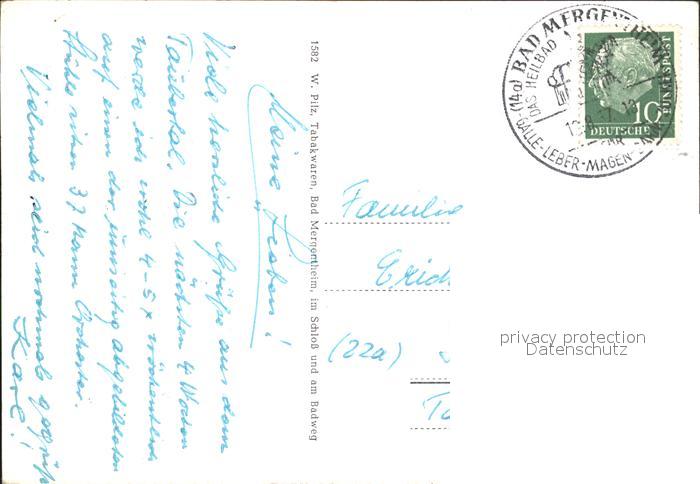 Meine Lieben!
Viele herzliche Grüße aus dem
Taubertal. Die nächsten 4 Wochen
werde ich wohl 4-5 x wöchentlich
auf einem der umseitig abgebildeten
Stühle einen 37 Mann Orchester.
Vielmals seid nochmals gegrüßt
Karl!
1582 W. Pilz, Tabakwaren, Bad Mergentheim, im Schloß und am Badweg
(14a) BAD MERGENTHEIM
DAS HEILBAD
GALLE-LEBER-MAGEN-
DEUTSCHE BUNDESPOST
10
Familie
Erich
(22a)
privacy protection
Datenschutz